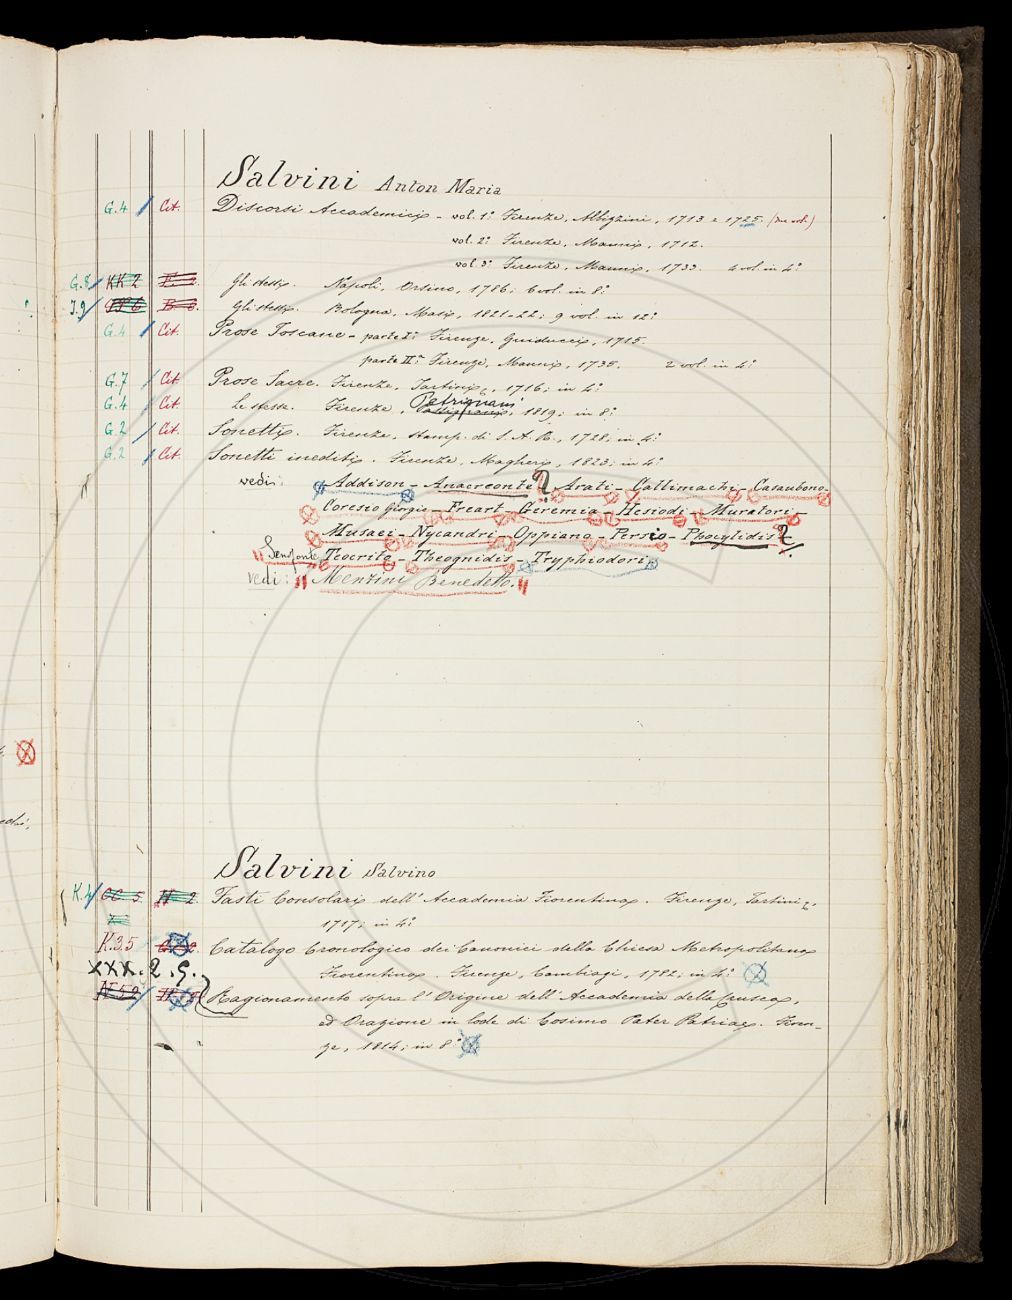 Salvini Anton Maria
G.4 Cit. Discorsi Accademici - vol. 1º Firenze, Albizzini, 1713 e 1725. (due vol.)
vol. 2º Firenze, Manni, 1712.
vol. 3º Firenze, Manni, 1733. 4 vol. in 4º
G.8 KK 2 Gli stessi. Napoli, Orsino, 1786; 6 vol. in 8º
I.9 Gli stessi. Bologna, Masi, 1821-22; 9 vol. in 12º
G.4 Cit. Prose Toscane - parte Iª Firenze, Guiducci, 1715.
parte IIª Firenze, Manni, 1735. 2 vol. in 4º
G.7 Cit. Prose Sacre. Firenze, Tartini, 1716; in 4º
G.4 Cit. Le stesse. Firenze, Petrignani, 1819; in 8º
G.2 Cit. Sonetti. Firenze, stamp. di S. A. R., 1728; in 4º
G.2 Cit. Sonetti inediti. Firenze, Magheri, 1823; in 4º
vedi: Addison - Anacreonte - Arati - Callimachi - Casaubono -
Coresio Giorgio - Freart - Geremia - Hesiodi - Muratori -
Musaei - Nycandri - Oppiano - Persio - Phocylidis
"Senofonte Teocrito - Theognidis - Tryphiodori
vedi: "Menzini Benedetto."
Salvini Salvino
K.4 CC 5 Fasti Consolari dell' Accademia Fiorentina. Firenze, Tartini,
1717; in 4º
K.3.5 Catalogo Cronologico dei Canonici della Chiesa Metropolitana
XXX.2.9. Fiorentina. Firenze, Cambiagi, 1782; in 4º
Ragionamento sopra l' Origine dell' Accademia della Crusca,
ed Orazione in lode di Cosimo Pater Patriae. Firen-
ze, 1814; in 8º